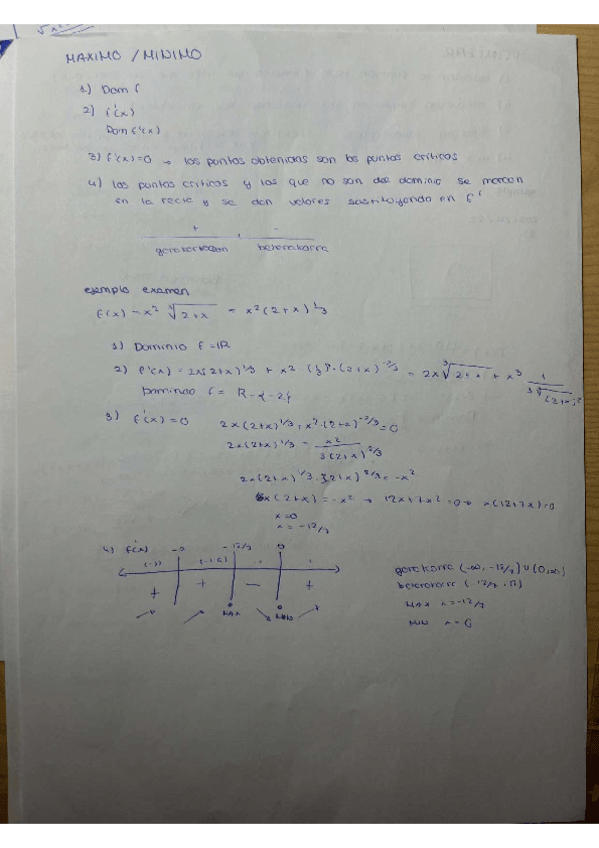 MAXIMO / MINIMO
1) Dom f
2) f'(x)
Dom f'(x)
3) f'(x)=0 → los puntos obtenidos son los puntos críticos
4) los puntos criticos y los que no son del dominio se marcan
en la recta y se dan valores sustituyendo en f'
+ -
gorakorra beherakorra
ejemplo examen
f(x) = x² ∛2+x = x²(2+x)^1/3
1) Dominio f = ℝ
2) f'(x) = 2x(2+x)^1/3 + x² · (1/3) · (2+x)^-2/3 = 2x ∛2+x + x²
Dominio f = R-{-2}
3) f'(x)=0 2x(2+x)^1/3 + x² · (2+x)^-2/3 = 0
2x(2+x)^1/3 = x²/3(2+x)^2/3
2x(2+x)^1/3 · 3(2+x)^2/3 = -x²
6x(2+x) = -x² → 12x+7x²=0 → x(12+7x)=0
x=0
x = -12/7
4) f'(x) -12/7 0
+ + - +
MAX MIN
gorakorra (-∞, -12/7) ∪ (0,∞)
beherakorra (-12/7, 0)
MAX x=-12/7
MIN x=0